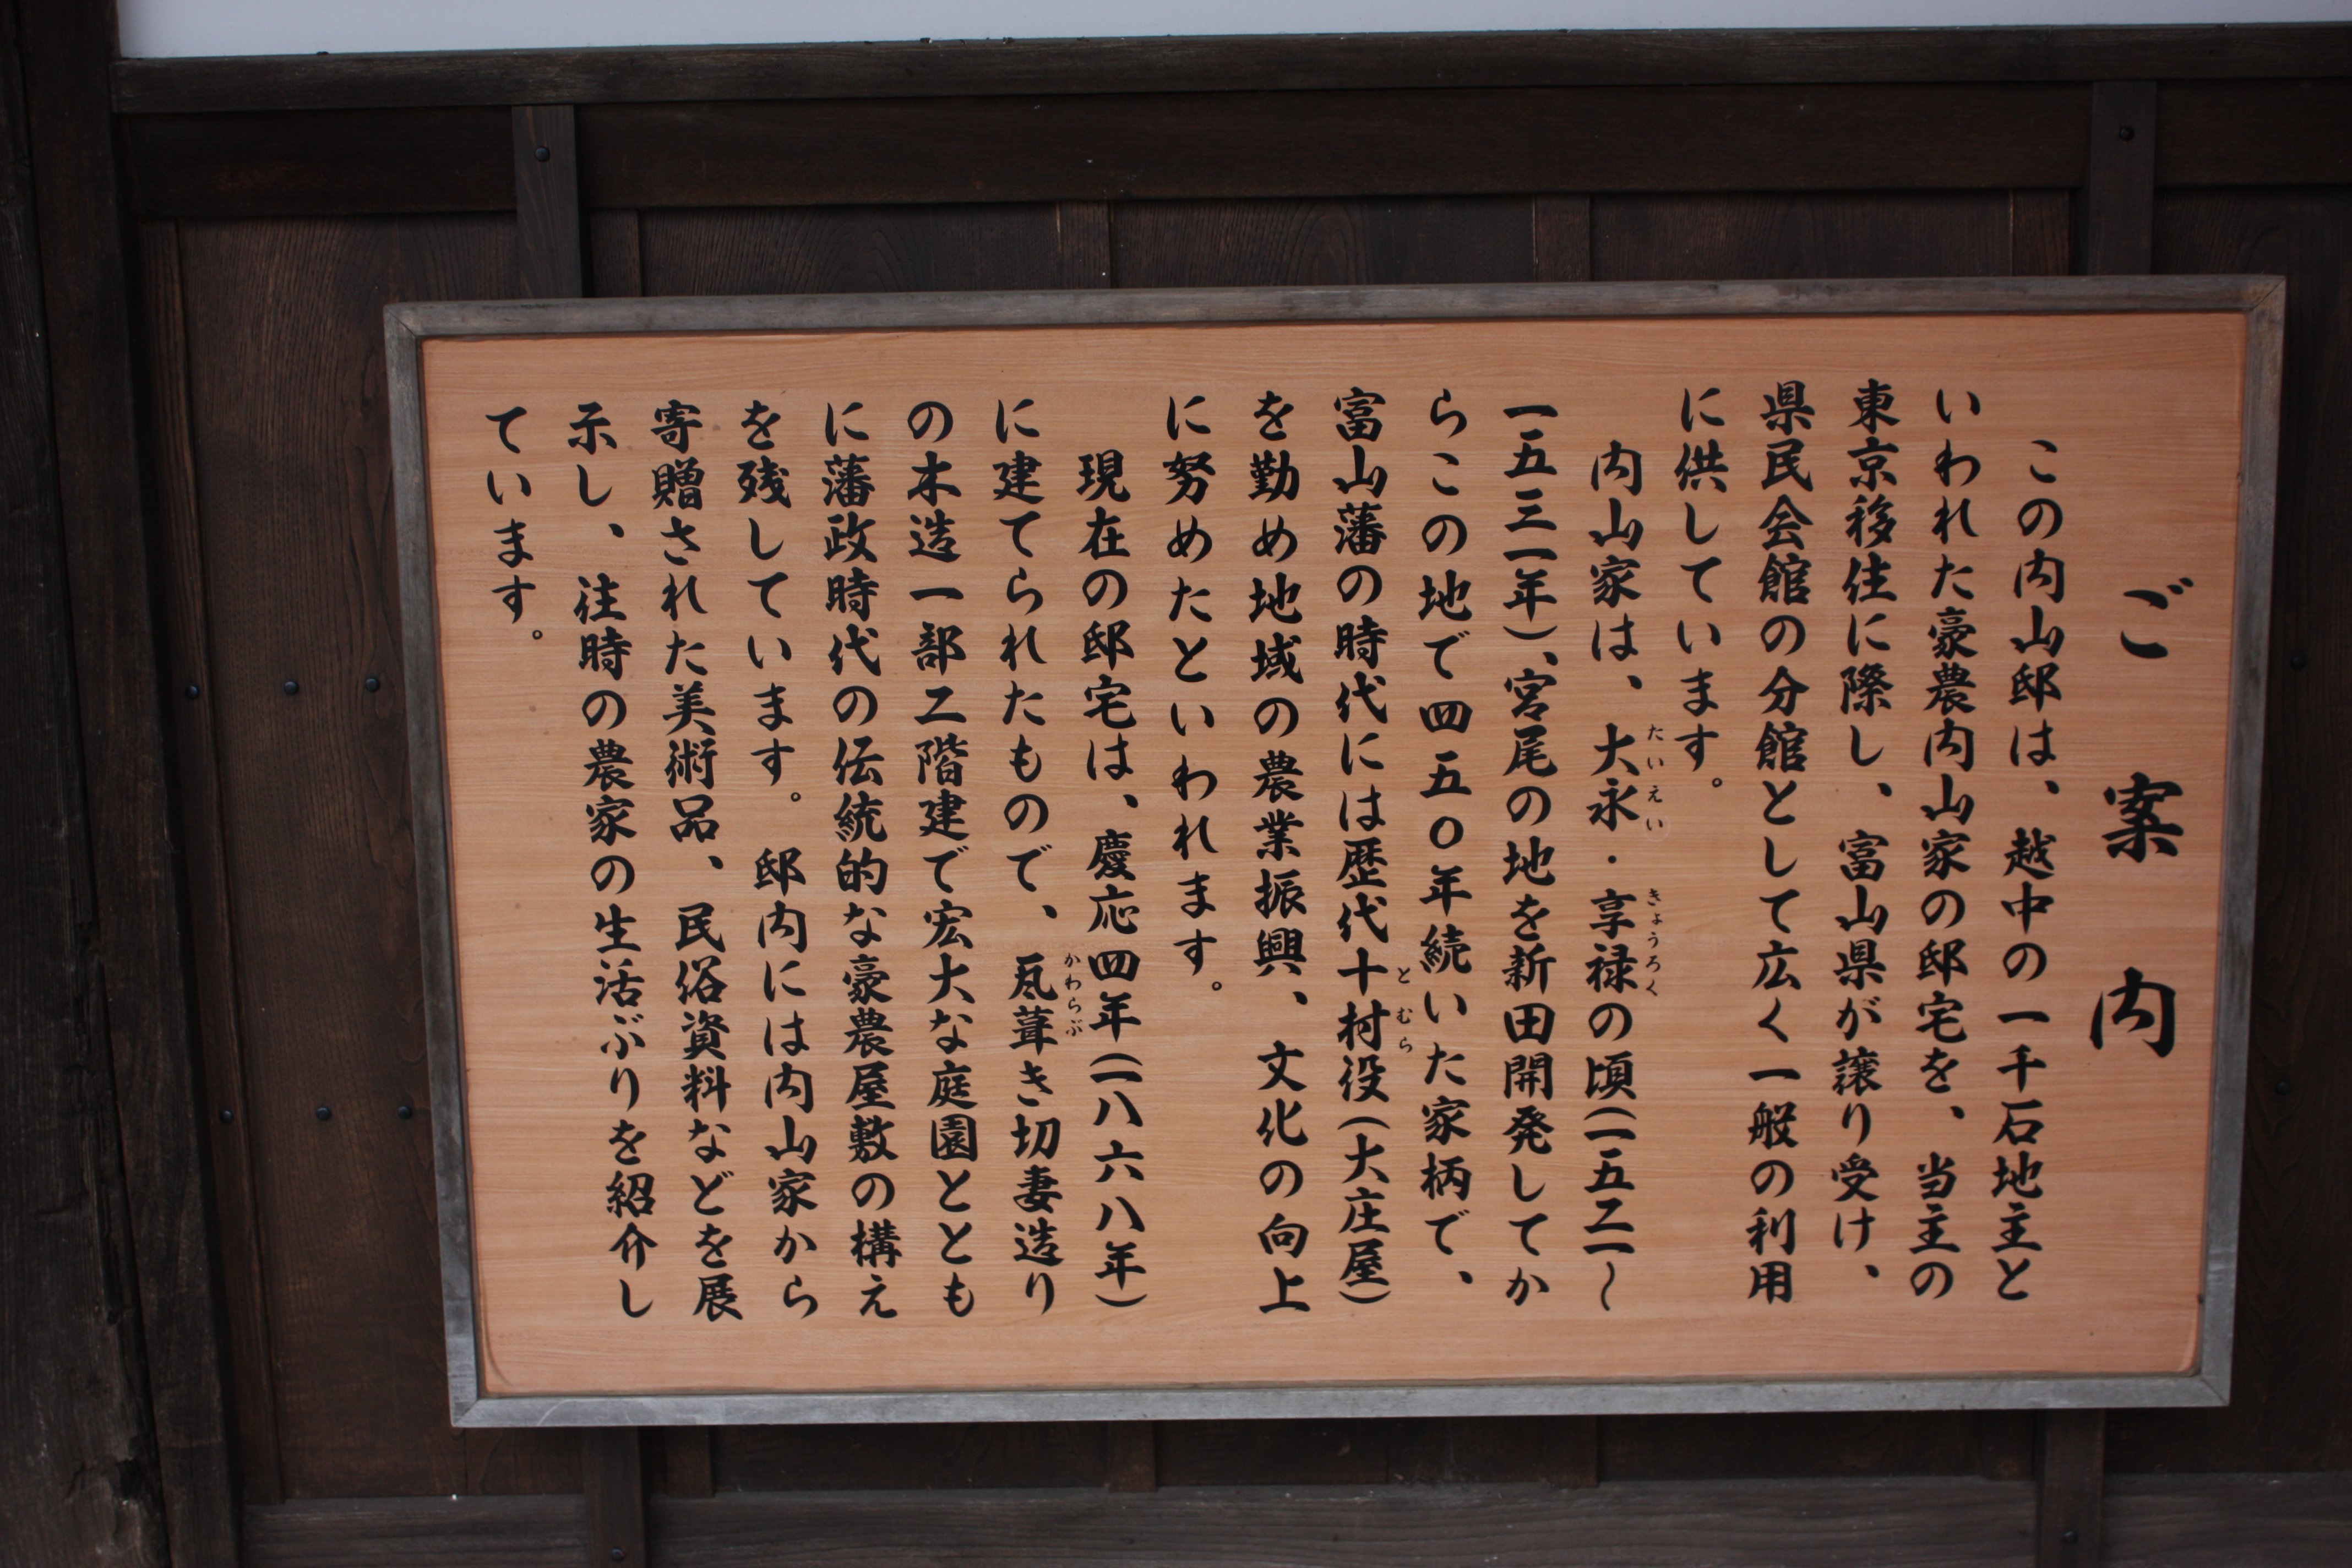 ご案内
この内山邸は、越中の一千石地主と
いわれた豪農内山家の邸宅を、当主の
東京移住に際し、富山県が譲り受け、
県民会館の分館として広く一般の利用
に供しています。
内山家は、大永・享禄の頃(一五二一～
一五三一年)、宮尾の地を新田開発してか
らこの地で四五〇年続いた家柄で、
富山藩の時代には歴代十村役(大庄屋)
を勤め地域の農業振興、文化の向上
に努めたといわれます。
現在の邸宅は、慶応四年(一八六八年)
に建てられたもので、瓦葺き切妻造り
の木造一部二階建で宏大な庭園ととも
に藩政時代の伝統的な豪農屋敷の構え
を残しています。邸内には内山家から
寄贈された美術品、民俗資料などを展
示し、往時の農家の生活ぶりを紹介し
ています。
たいえい
きょうろく
とむら
かわらぶ